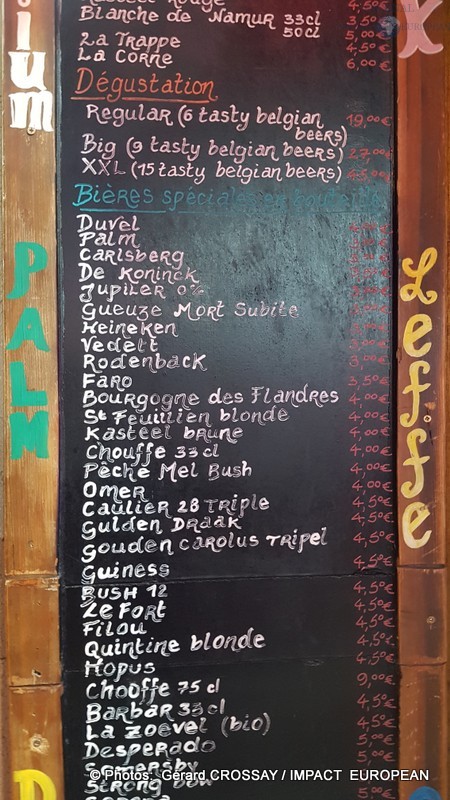 Blanche de Namur 33cl 3,50€
50cl 5,00€
La Trappe 4,50€
La Corne 6,00€
Dégustation
Regular (6 tasty belgian 19,00€
beers)
Big (9 tasty belgian beers)
XXL (15 tasty belgian beers)
Bières spéciales en
Duvel
Palm
Carlsberg
De Koninck
Jupiler 0%
Gueuze Mort Subite
Heineken
Vedett
Rodenback
Faro 3,50€
Bourgogne des Flandres 4,00€
St Feuillien blonde 4,00€
Kasteel brune 4,00€
Chouffe 33cl 4,00€
Pêche Mel Bush 4,00€
Omer 4,00€
Caulier 28 Triple 4,50€
Gulden Draak 4,50€
Gouden Carolus Tripel 4,50€
Guiness 4,50€
Bush 12 4,50€
Le Fort 4,50€
Filou 4,50€
Quintine blonde 4,50€
Hopus 4,50€
Chouffe 75 cl 9,00€
Barbar 33 cl 4,50€
La Zoevel (bio) 4,50€
Desperado 5,00€
Somersby 5,00€
Strong
5,00€
ium
PALM
x
Leffe
D
© Photos: Gérard CROSSAY / IMPACT EUROPEAN